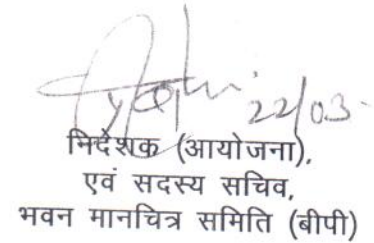 22/03
निदेशक (आयोजना),
एवं सदस्य सचिव,
भवन मानचित्र समिति (बीपी)